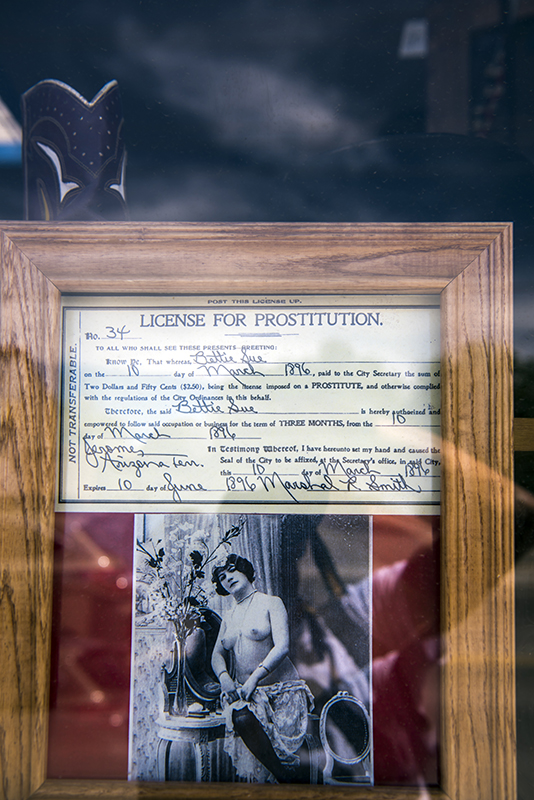 POST THIS LICENSE UP.
LICENSE FOR PROSTITUTION.
No. 34
TO ALL WHO SHALL SEE THESE PRESENTS GREETING:
Know Ye, That whereas, Bettie Sue
on the 10 day of March 1896, paid to the City Secretary the sum of
Two Dollars and Fifty Cents ($2.50), being the license imposed on a PROSTITUTE, and otherwise complied
with the regulations of the City Ordinances in this behalf.
Therefore, the said Bettie Sue is hereby authorized and
empowered to follow said occupation or business for the term of THREE MONTHS, from the 10
day of March 1896
Jerome, In Testimony Whereof, I have hereunto set my hand and caused the
Arizona Terr. Seal of the City to be affixed, at the Secretary's office, in said City,
this 10 day of March 1896
Expires 10 day of June 1896 Marshal R. Smith
NOT TRANSFERABLE.